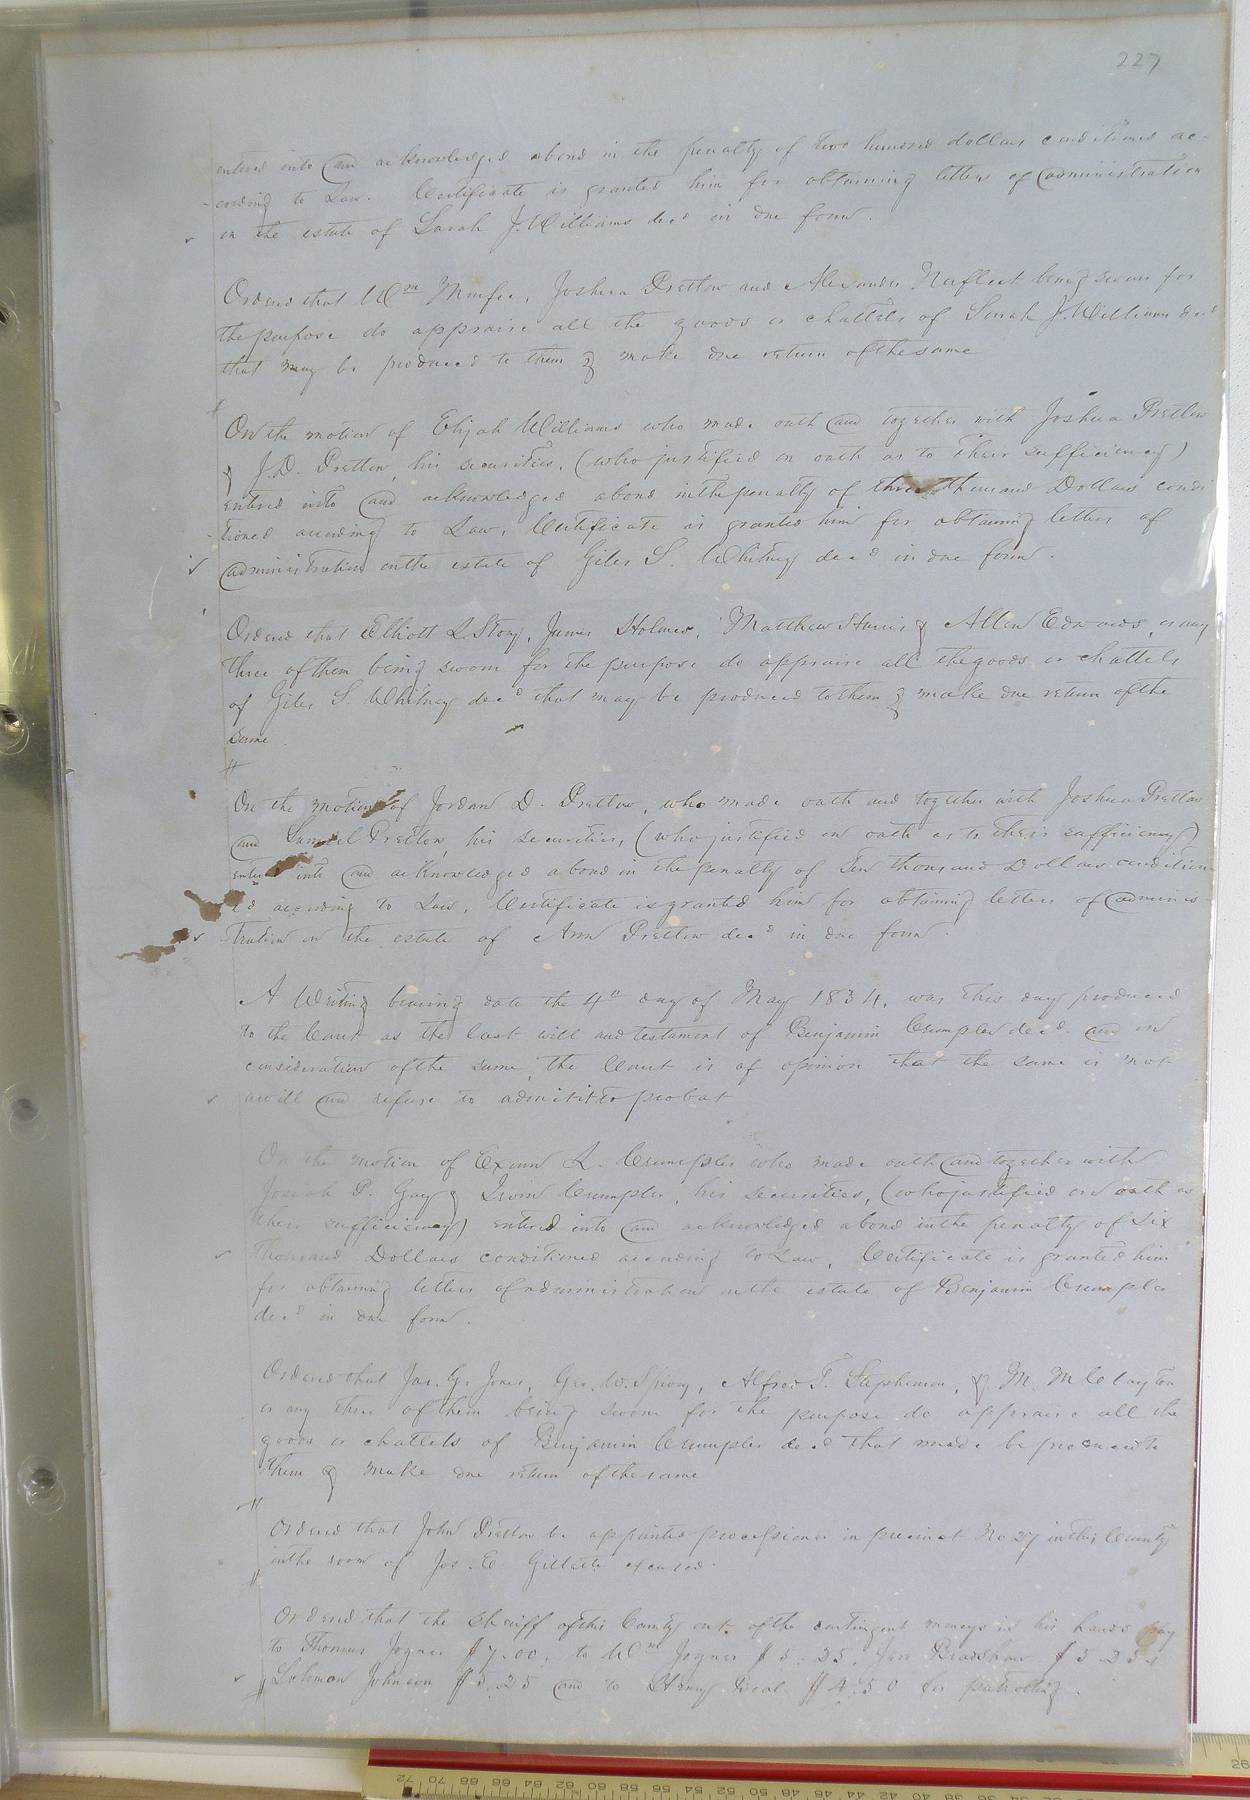 227
entered into and acknowledged abond in the penalty of two hundred dollars conditioned ac-
-cording to Law. Certificate is granted him for obtaining letters of administration
on the estate of Sarah J. Williams decd in due form.
Ordered that Wm Murfee, Joshua Pretlow and Alexander Norfleet being sworn for
the purpose do appraise all the goods or chattels of Sarah J. Williams decd
that may be produced to them & make due return of the same
On the motion of Elijah Williams who made oath and together with Joshua Pretlow
& J.D. Pretlow, his securities, (who justified on oath as to their sufficiency)
entered into and acknowledged abond in the penalty of three thousand Dollars condi
-tioned according to Law, Certificate is granted him for obtaining letters of
administration on the estate of Giles S. Whitney decd in due form.
Ordered that Elliott L Story, James Holmes, Matthew Harris & Allen Edwards, or any
three of them being sworn for the purpose do appraise all the goods or chattels
of Giles S. Whitney decd that may be produced to them & make due return of the
same.
On the motion of Jordan D. Pretlow, who made oath and together with Joshua Pretlow
and Samuel Pretlow, his securities, (who justified on oath as to their sufficiency)
entered into and acknowledged abond in the penalty of Ten thousand Dollars condition
ed according to Law, Certificate is granted him for obtaining letters of adminis-
tration on the estate of Ann Pretlow decd in due form.
A Writing bearing date the 4th day of May 1834, was this day produced
to the Court as the last will and testament of Benjamin Crumpler decd. and on
consideration of the same, the Court is of opinion that the same is not
awill and refuse to admit it to probat
On the motion of Exum L. Crumpler who made oath and together with
Josiah P. Gay & Crumpler, his securities, (who justified on oath as
their sufficiency) entered into and acknowledged abond in the penalty of Six
Thousand Dollars conditioned according to Law, Certificate is granted him
for obtaining letters of administration on the estate of Benjamin Crumpler
decd in due form.
Ordered that Jas. G. Jones, Geo. W. Spivey, Alfred T. Stephenson, & M. M Clayton
or any three of them being sworn for the purpose do appraise all the
goods or chattels of Benjamin Crumpler decd that made be produced to
them & make due return of the same
Ordered that John Pretlow be appointed processioner in precinct No 27 in this County
in the room of Jos. E. Gillette excused.
Ordered that the Sheriff of this County out of the contingent moneys in his hands pay
to Thomas Joyner $7.00, to Wm Joyner $5.25, Bradshaw $5.25
Solomon Johnson $5.25 and to Henry Beal $4.50 for patrolling.
72 70 68 66 64 62 60 58 56 54 52 50 48 46 44 42 40 38 36 34 32